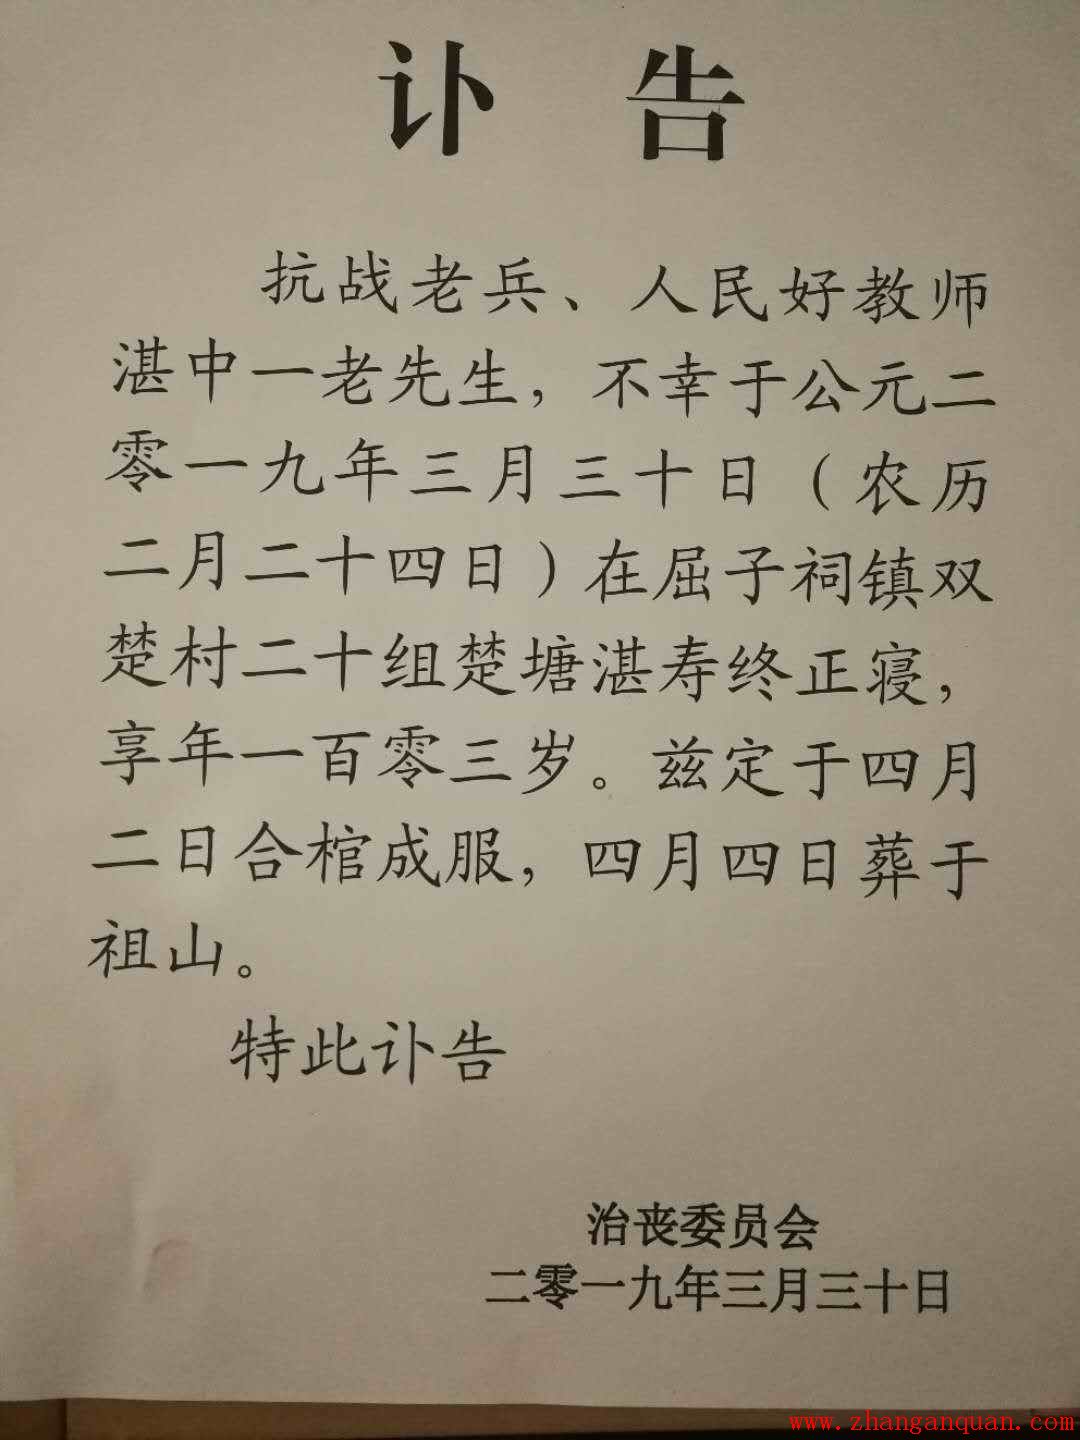 讣 告
抗战老兵、人民好教师
湛中一老先生，不幸于公元二
零一九年三月三十日（农历
二月二十四日）在屈子祠镇双
楚村二十组楚塘湛寿终正寝，
享年一百零三岁。兹定于四月
二日合棺成服，四月四日葬于
祖山。
特此讣告
治丧委员会
二零一九年三月三十日
www.zhanganquan.com